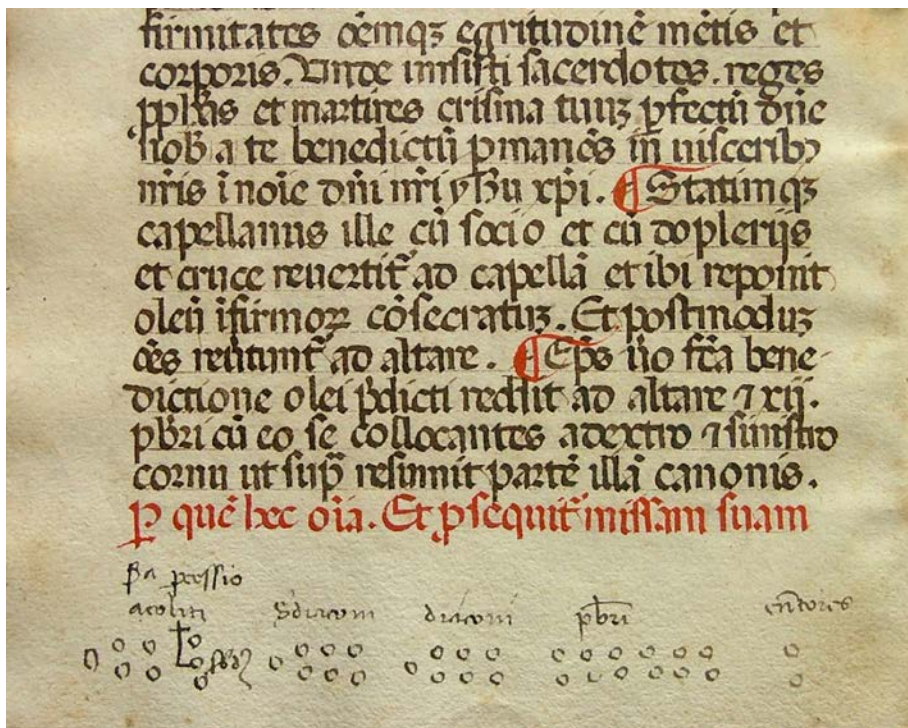 firmitates oēmqꝫ egritudinē mētis et
corporis. Vnde unxisti sacerdotes. reges
ꝓphās et martires crisma tuuꝫ ꝑfectū dn̄e
nob̄ a te benedictū ꝑmanēs in uisceribꝰ
nr̄is ī noīe dn̄i nr̄i yħu xp̄i. ¶ Statimqꝫ
capellanus ille cū socio et cū dopleriis
et cruce reuertit̄ ad capellā et ibi reponit
oleū īfirmoꝝ cōsecratuꝫ. Et postmoduꝫ
oēs reūtunt̄ ad altare. ¶ Ep̄s ūo fc̄a bene-
dictione olei p̄dicti reddit ad altare ⁊ xij.
pb̄ri cū eo se collocantes a dextro ⁊ sinistro
cornu ut sup̄ resumit partē illā canonis.
P quē hec oīa. Et ꝓsequit̄ missam suam
pᵃ ꝓcessio
acoliti S̄diaconi diaconi pb̄ri cn̄tores